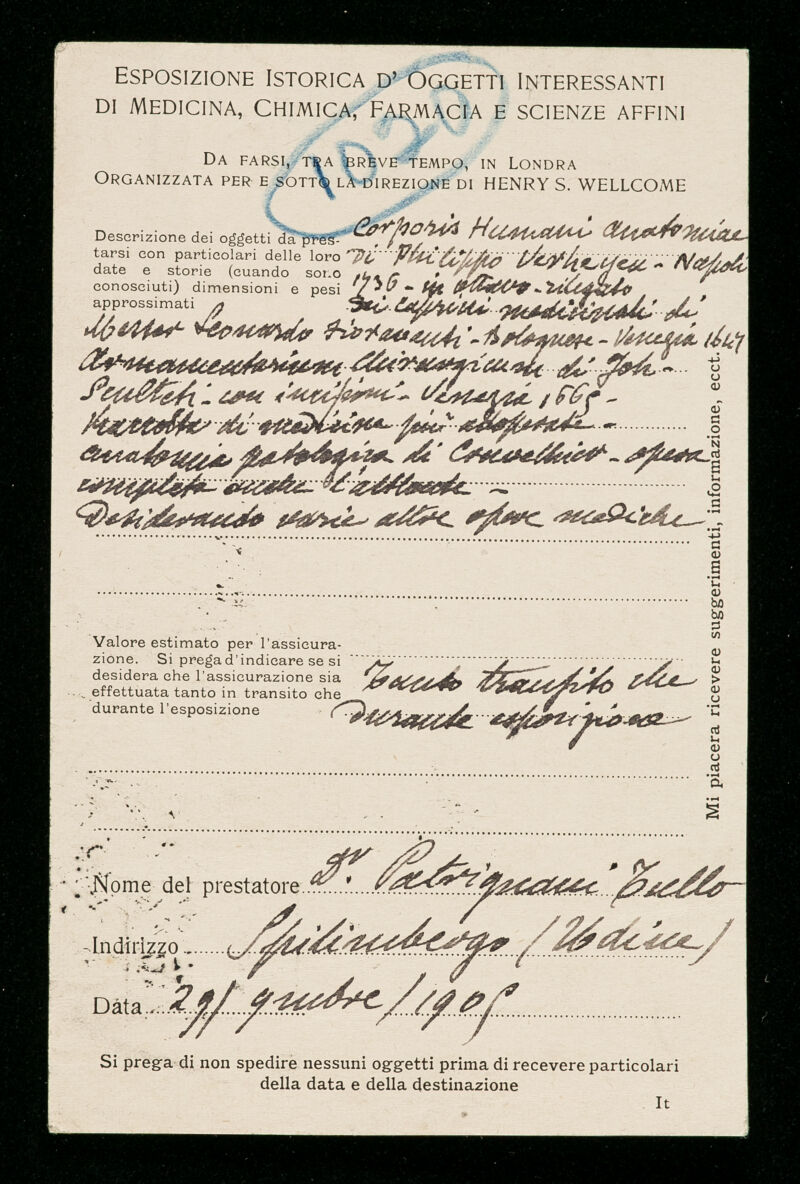 ESPOSIZIONE ISTORICA D' OGGETTI INTERESSANTI
DI MEDICINA, CHIMICA, FARMACIA E SCIENZE AFFINI
1020
DA FARSI, TRA BREVE TEMPO, IN LONDRA
ORGANIZZATA PER E SOTTO LA DIREZIONE DI HENRY S. WELLCOME
Descrizione dei oggetti da pres-
tarsi con particolari delle loro
date e storie (cuando sono
conosciuti) dimensioni e pesi
approssimati
Corporis Humani Anatomiae
di Philippo Verheyen - Napoli
1736 - in ottavo - rilegato
Sei caprici medicinali di
Messer Leonardo Fioravanti - Bolognese - Venezia 1647
Armamentarium Chirurgicum di Joh -
Sculteti - con incisioni - Venezia 1665 -
Raccolta di medicine più adoperate -
Anatomia patologica di Cruveilhier - opera
completa anche l'atlante -
Desiderando varie altre opere mediche
Mi piacera ricevere suggerimenti, informazione, ecct.
Valore estimato per l'assicura-
zione. Si prega d'indicare se si
desidera che l'assicurazione sia
effettuata tanto in transito che
durante l'esposizione
Tanto transito che
durante esposizione
Nome del prestatore Dr. Patrignani Tullo
Indirizzo Spilimbergo (Udine)
Data 29/ 9mbre / 1905
Si prega di non spedire nessuni oggetti prima di recevere particolari
della data e della destinazione
It